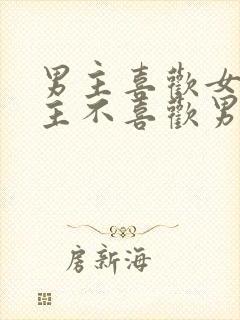 男主喜歡女
主不喜歡男
房新海